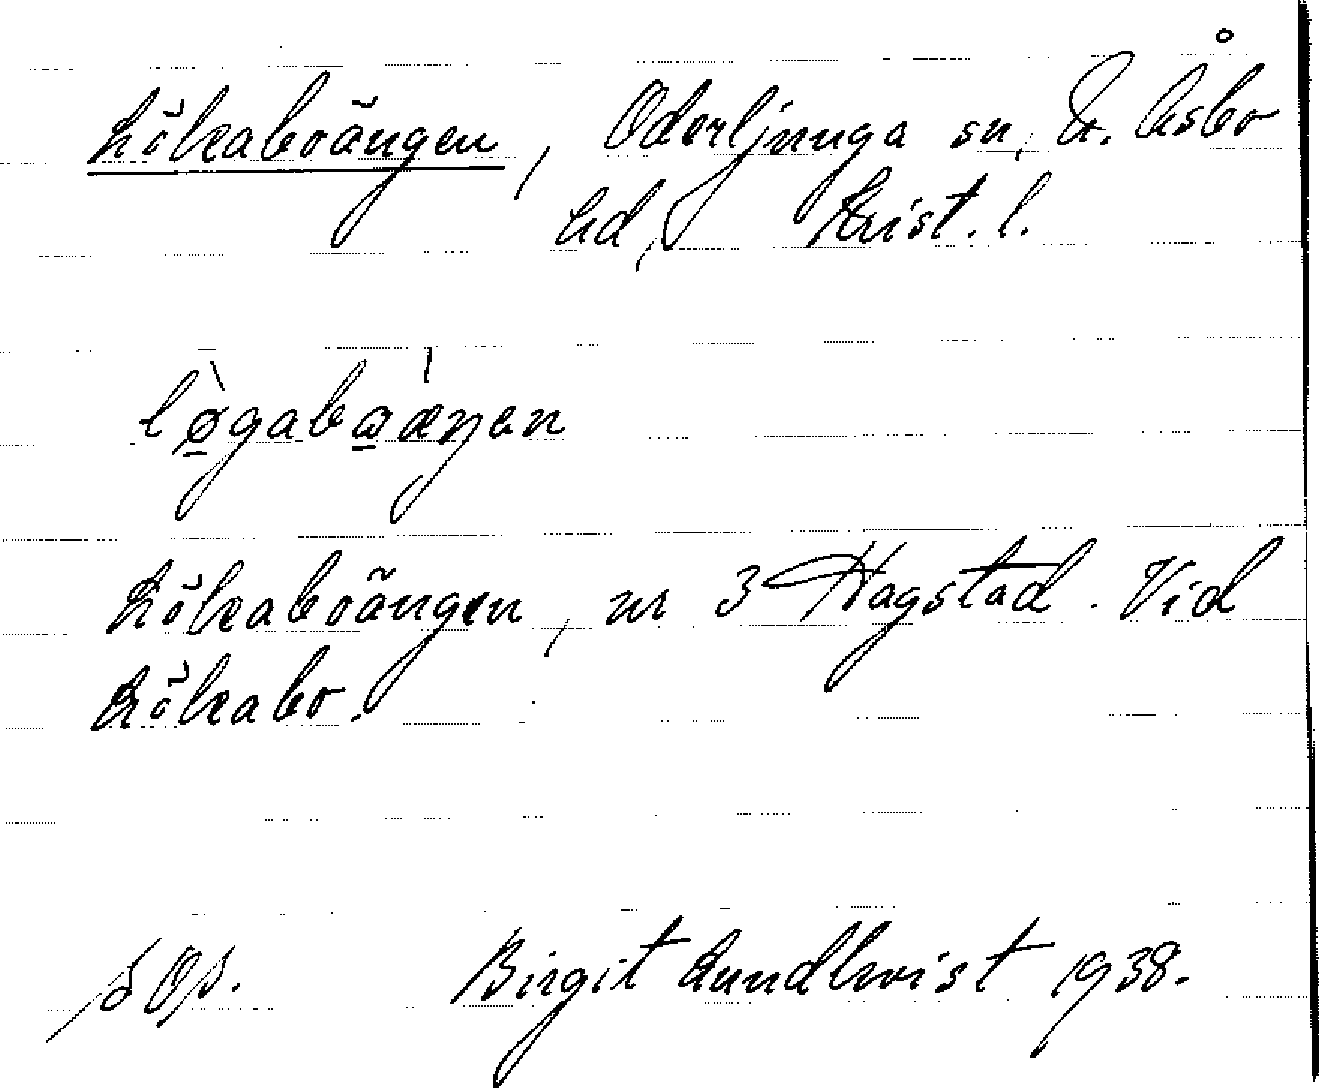 Lökaboängen, Oderljunga sn, N. Åsbo
hd, Krist. l.
løgaboæŋen
Lökaboängen, nr 3 Hagstad. Vid
Lökabo.
Birgit Lundkvist 1938.